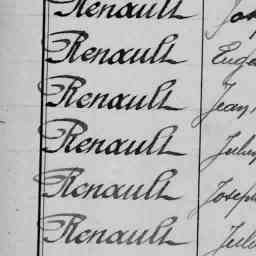 Renault
Renault Eugè
Renault Jean
Renault
Renault Joseph
Renault